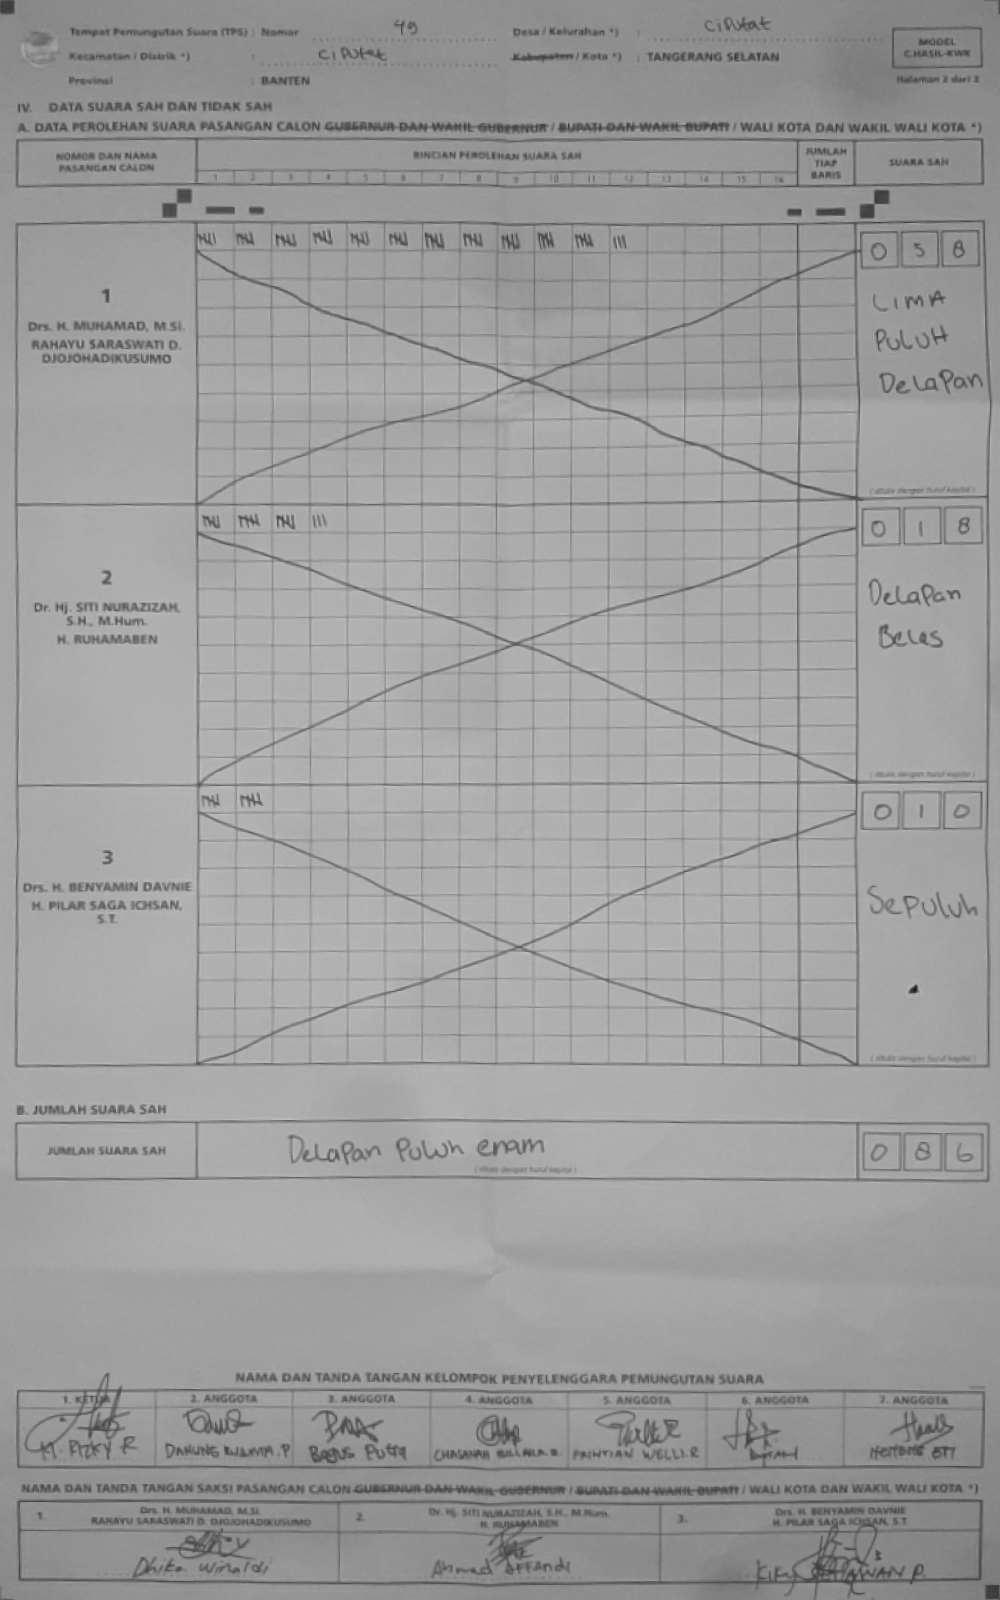 Tempat Pemungutan Suara (TPS) : Nomor 49 Desa / Kelurahan *) : Ciputat
Kecamatan / Distrik *) : Ciputat Kabupaten / Kota *) : TANGERANG SELATAN
Provinsi : BANTEN
MODEL
C.HASIL-KWK
Halaman 2 dari 3
IV. DATA SUARA SAH DAN TIDAK SAH
A. DATA PEROLEHAN SUARA PASANGAN CALON GUBERNUR DAN WAKIL GUBERNUR / BUPATI DAN WAKIL BUPATI / WALI KOTA DAN WAKIL WALI KOTA *)
NOMOR DAN NAMA
PASANGAN CALON
RINCIAN PEROLEHAN SUARA SAH
1 2 3 4 5 6 7 8 9 10 11 12 13 14 15 16
JUMLAH
TIAP
BARIS
SUARA SAH
1
Drs. H. MUHAMAD, M.Si.
RAHAYU SARASWATI D.
DJOJOHADIKUSUMO
0 5 8
LIMA
PULUH
DELAPAN
(ditulis dengan huruf kapital)
2
Dr. Hj. SITI NURAZIZAH,
S.H., M.Hum.
H. RUHAMABEN
0 1 8
DELAPAN
Belas
(ditulis dengan huruf kapital)
3
Drs. H. BENYAMIN DAVNIE
H. PILAR SAGA ICHSAN,
S.T.
0 1 0
Sepuluh
(ditulis dengan huruf kapital)
B. JUMLAH SUARA SAH
JUMLAH SUARA SAH
Delapan Puluh enam
(ditulis dengan huruf kapital)
0 8 6
NAMA DAN TANDA TANGAN KELOMPOK PENYELENGGARA PEMUNGUTAN SUARA
1. KETUA 2. ANGGOTA 3. ANGGOTA 4. ANGGOTA 5. ANGGOTA 6. ANGGOTA 7. ANGGOTA
M. RIZKY R
BAGUS PUTRA
NAMA DAN TANDA TANGAN SAKSI PASANGAN CALON GUBERNUR DAN WAKIL GUBERNUR / BUPATI DAN WAKIL BUPATI / WALI KOTA DAN WAKIL WALI KOTA *)
1. Drs. H. MUHAMAD, M.Si.
RAHAYU SARASWATI D. DJOJOHADIKUSUMO
2. Dr. Hj. SITI NURAZIZAH, S.H., M.Hum.
H. RUHAMABEN
3. Drs. H. BENYAMIN DAVNIE
H. PILAR SAGA ICHSAN, S.T.
Dhika Winaldi
Ahmad Affandi